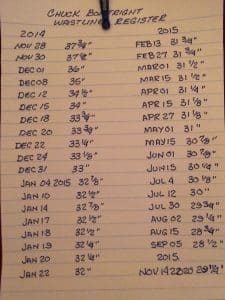 CHUCK BOATRIGHT
WASTLINE REGISTER
2014 2015
NOV 28 37 3/4" FEB 13 31 3/4"
NOV 30 37 1/8" FEB 27 31 3/4"
DEC 01 36" MAR 01 31 1/2"
DEC 08 35" MAR 15 31 1/2"
DEC 12 34 1/2" APR 01 31 1/4"
DEC 15 34" APR 15 31 1/8"
DEC 18 33 3/4" APR 27 31 1/8"
DEC 20 33 3/4" MAY 01 31"
DEC 22 33 1/4" MAY 15 30 7/8"
DEC 24 33 1/8" JUN 01 30 7/8"
DEC 31 33" JUN 15 30 1/4"
JAN 04 2015 32 7/8" JUL 4 30 1/8"
JAN 10 32 1/2" JUL 12 30"
JAN 14 32 7/8" JUL 30 29 3/4"
JAN 17 32 1/2" AUG 02 29 1/4"
JAN 18 32 1/2" AUG 15 28 3/4"
JAN 19 32 1/4" SEP 05 28 1/2"
JAN 20 32 1/4" 2015
JAN 22 32" NOV 14